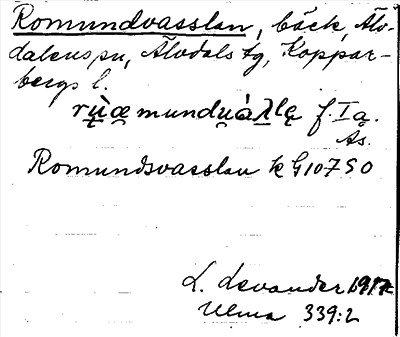 Romundvasslan, bäck, Älv-
dalens sn, Älvdals tg, Koppar-
bergs l.
f. Ia.
As.
Romundsvasslan k G 10750
L. Levander 1917
Ulma 339:2